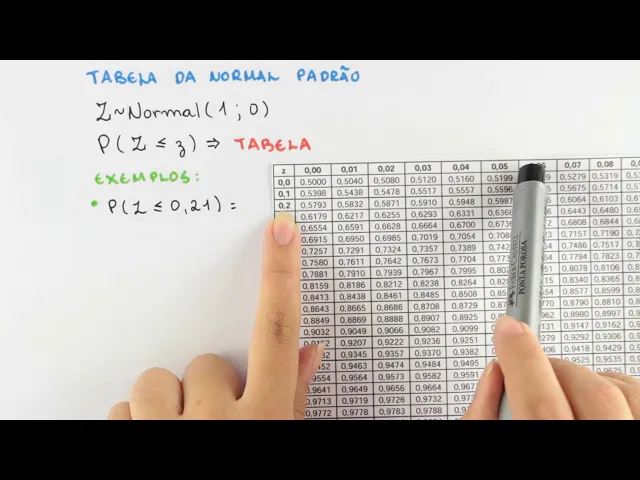 TABELA DA NORMAL PADRÃO
Z~Normal(1;0)
P(Z ≤ z) ⇒ TABELA
EXEMPLOS:
• P(Z ≤ 0,21) =
z 0,00 0,01 0,02 0,03 0,04 0,05 0,07 0,08
0,0 0,5000 0,5040 0,5080 0,5120 0,5160 0,5199 0,5279 0,5319
0,1 0,5398 0,5438 0,5478 0,5517 0,5557 0,5596 0,5675 0,5714
0,2 0,5793 0,5832 0,5871 0,5910 0,5948 0,5987 0,6064 0,6103
0,6179 0,6217 0,6255 0,6293 0,6331 0,6368 0,6443 0,6480
0,6554 0,6591 0,6628 0,6664 0,6700 0,6736 0,6808 0,6844
0,6915 0,6950 0,6985 0,7019 0,7054 0,7088 0,7157 0,7190
0,7257 0,7291 0,7324 0,7357 0,7389 0,7486 0,7517
0,7580 0,7611 0,7642 0,7673 0,7704 0,7794 0,7823
0,7881 0,7910 0,7939 0,7967 0,7995 0,8078 0,8106
0,8159 0,8186 0,8212 0,8238 0,8264 0,8340 0,8365
0,8413 0,8438 0,8461 0,8485 0,8508 0,8577 0,8599
0,8643 0,8665 0,8686 0,8708 0,8729 0,8790 0,8810
0,8849 0,8869 0,8888 0,8907 0,8925 0,8980
0,9032 0,9049 0,9066 0,9082 0,9099 0,9147 0,9162
0,9207 0,9222 0,9236 0,9251 0,9279 0,9292 0,9306
0,9345 0,9357 0,9370 0,9382 0,9418 0,9429
0,9463 0,9474 0,9484 0,9495 0,9525 0,9535
0,9554 0,9564 0,9573 0,9582 0,9591
0,9641 0,9649 0,9656 0,9664
0,9713 0,9719 0,9726 0,9732
0,9772 0,9778 0,9783 0,9788
PONTA POROSA